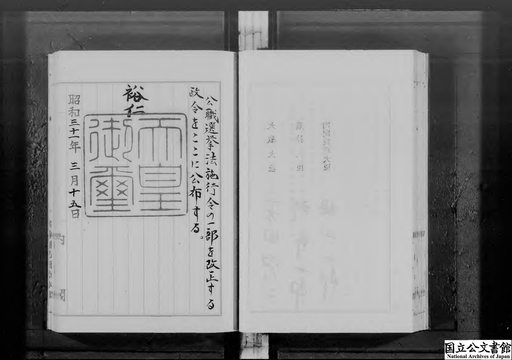 公職選挙法施行令の一部を改正する
政令をここに公布する。
裕仁
天皇
御璽
昭和三十一年三月十五日
国立公文書館
National Archives of Japan